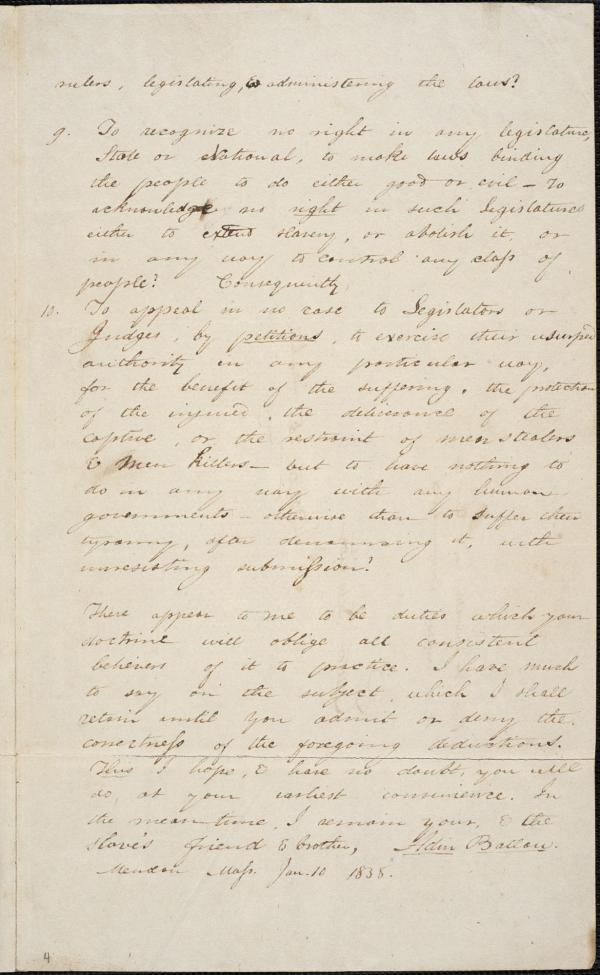 rulers, legislating, & administering the laws?
9. To recognize no right in any legislature,
State or National, to make laws binding
the people to do either good or evil — To
acknowledge no right in such Legislatures
either to extend slavery, or abolish it, or
in any way to control any class of
people? Consequently,
10. To appeal in no case to Legislators or
Judges, by petitions, to exercise their usurped
authority in any particular way,
for the benefit of the suffering, the protection
of the injured, the deliverance of the
captive, or the restraint of men stealers
& Men killers — but to have nothing to
do in any way with any human
governments — otherwise than to suffer their
tyranny, after denouncing it, with
unresisting submission?
These appear to me to be duties which your
doctrine will oblige all consistent
believers of it to practice. I have much
to say on the subject, which I shall
retain until you admit or deny the
correctness of the foregoing deductions.
This I hope, & have no doubt, you will
do, at your earliest convenience. In
the mean time, I remain your, & the
slave's friend & brother, Adin Ballou.
Mendon Mass. Jan. 10 1838.
4